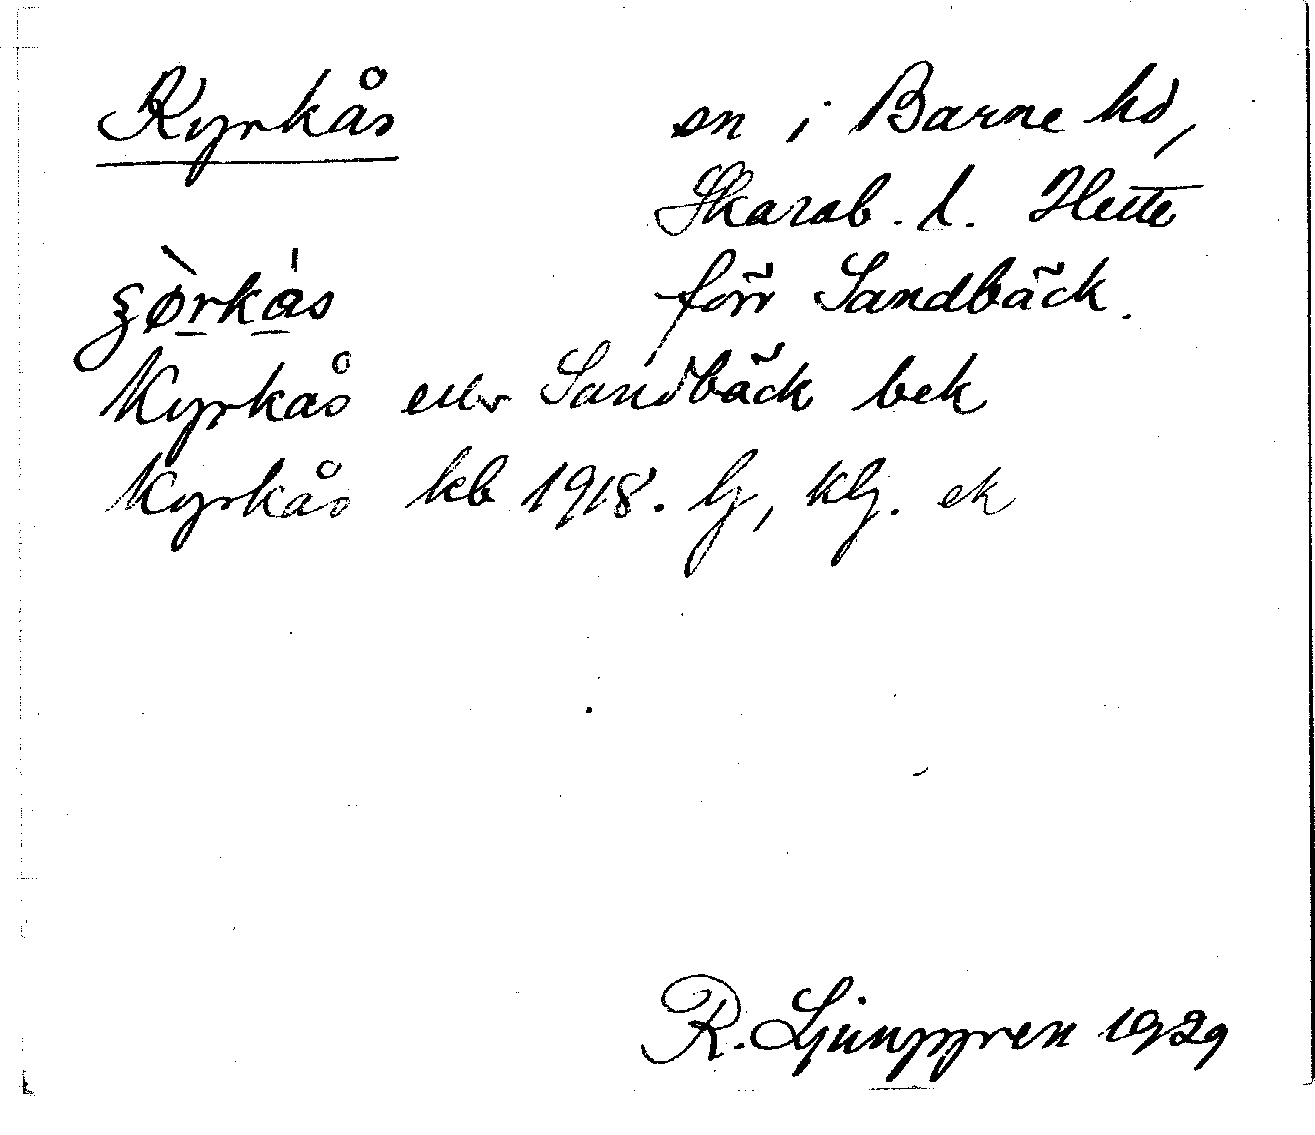 Kyrkås
sn i Barne hd,
Skarab. l. Hette
förr Sandbäck.
Kyrkås eller Sandbäck bek
Kyrkås kb 1918. lj, klj. ek
R. Ljunggren 1929